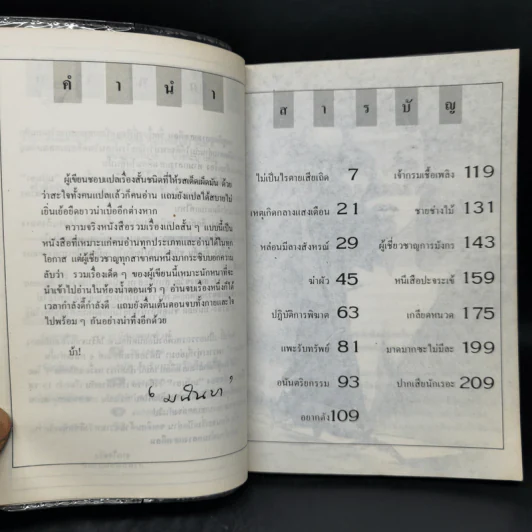 คำนำ
ผู้เขียนชอบแปลเรื่องสั้นชนิดที่ให้รสเด็ดเผ็ดมัน ด้วย
ว่าสะใจทั้งคนแปลแล้วก็คนอ่าน แถมยังแปลได้สบายไม่
เยิ่นเย้อยืดยาวน่าเบื่ออีกต่างหาก
ความจริงหนังสือรวมเรื่องแปลสั้น ๆ แบบนี้เป็น
หนังสือที่เหมาะแก่คนอ่านทุกประเภทและอ่านได้ในทุก
โอกาส แต่ผู้เชี่ยวชาญทุกสาขาคนหนึ่งมากระซิบบอกความ
ลับว่า รวมเรื่องเด็ด ๆ ของผู้เขียนนี้เหมาะนักหนาที่จะ
นำเข้าไปอ่านในห้องน้ำตอนเช้า ๆ อ่านจบเรื่องหนึ่งก็ได้
เวลากำลังดี แถมยังตื่นเต้นตอนจบทั้งกายและใจ
ไปพร้อม ๆ กันอย่างน่าทึ่งอีกด้วย
บ๊ะ!
สารบัญ
ไม่เป็นไรตายเสียเถิด 7
เหตุเกิดกลางแสงเดือน 21
หล่อนมีลางสังหรณ์ 29
ฆ่าตัว 45
ปฏิบัติการพิฆาต 63
แพะรับทรัพย์ 81
อนันตริยกรรม 93
อยากดัง 109
เจ้ากรมเชื้อเพลิง 119
ชายช่างไม้ 131
ผู้เชี่ยวชาญการมังกร 143
หนีเสือปะจระเข้ 159
เกลียดหนวด 175
มาดมากซะไม่มีละ 199
ปากเสียนักเรอะ 209